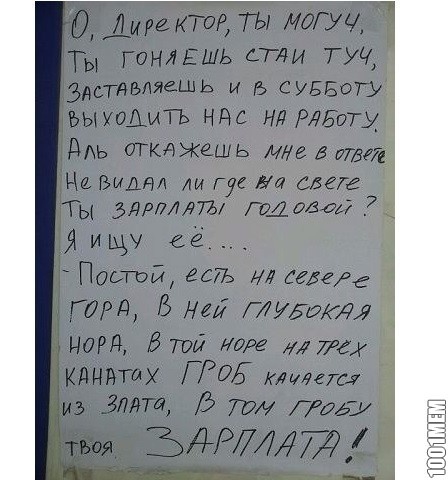 О, Директор, ты могуч,
Ты гоняешь стаи туч,
Заставляешь и в субботу
выходить нас на работу.
Аль откажешь мне в ответе
Не видал ли где на свете
Ты зарплаты годовой?
Я ищу её....
- Постой, есть на севере
гора, в ней глубокая
нора, в той норе на трех
канатах ГРОБ качается
из злата, в том гробу
твоя ЗАРПЛАТА!
1001MEM